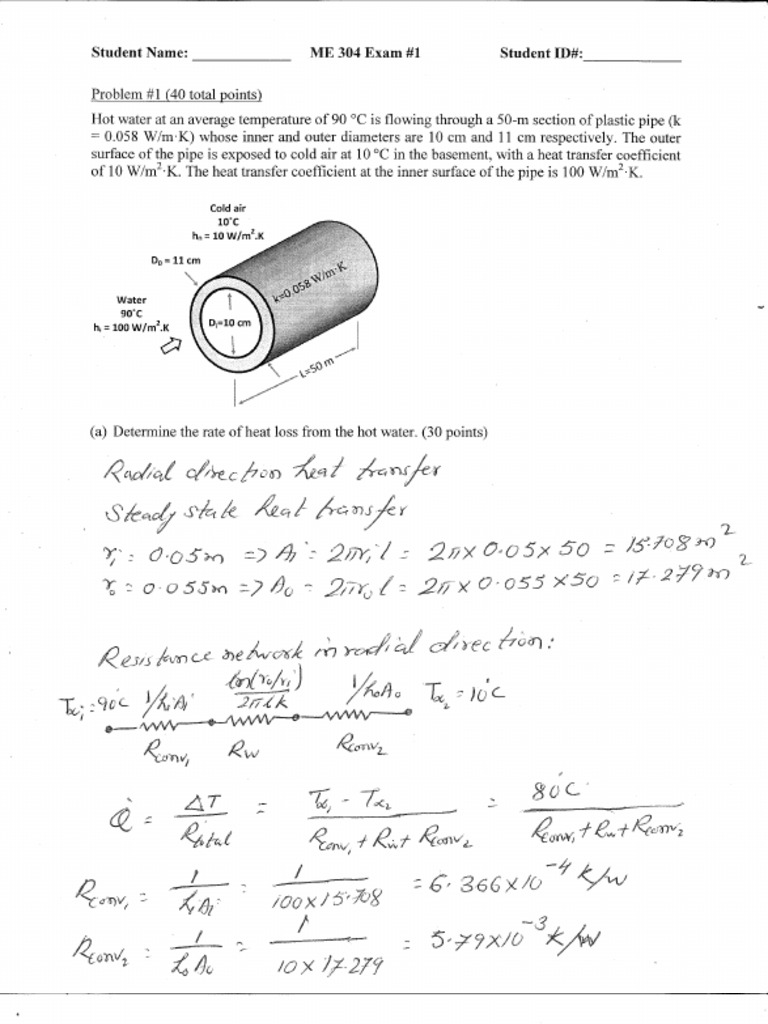 Student Name: ____________ ME 304 Exam #1 Student ID#:____________
Problem #1 (40 total points)
Hot water at an average temperature of 90 °C is flowing through a 50-m section of plastic pipe (k
= 0.058 W/m·K) whose inner and outer diameters are 10 cm and 11 cm respectively. The outer
surface of the pipe is exposed to cold air at 10 °C in the basement, with a heat transfer coefficient
of 10 W/m²·K. The heat transfer coefficient at the inner surface of the pipe is 100 W/m²·K.
Cold air
10°C
hₒ = 10 W/m².K
Dₒ = 11 cm
k=0.058 W/m·K
Water
90°C
hᵢ = 100 W/m².K
Dᵢ=10 cm
L=50 m
(a) Determine the rate of heat loss from the hot water. (30 points)
Radial direction heat transfer
Steady state heat transfer
rᵢ = 0.05m => Aᵢ = 2πrᵢl = 2π×0.05×50 = 15.708m²
rₒ = 0.055m => Aₒ = 2πrₒl = 2π×0.055×50 = 17.279m²
Resistance network in radial direction:
T∞₁ = 90°C 1/hᵢAᵢ ln(rₒ/rᵢ)/2πLk 1/hₒAₒ T∞₂ = 10°C
Rconv₁ Rw Rconv₂
Q̇ = ΔT/Rtotal = (T∞₁ - T∞₂)/(Rconv₁ + Rw + Rconv₂) = 80°C/(Rconv₁ + Rw + Rconv₂)
Rconv₁ = 1/hᵢAᵢ = 1/100×15.708 = 6.366×10⁻⁴ K/W
Rconv₂ = 1/hₒAₒ = 1/10×17.279 = 5.79×10⁻³ K/W